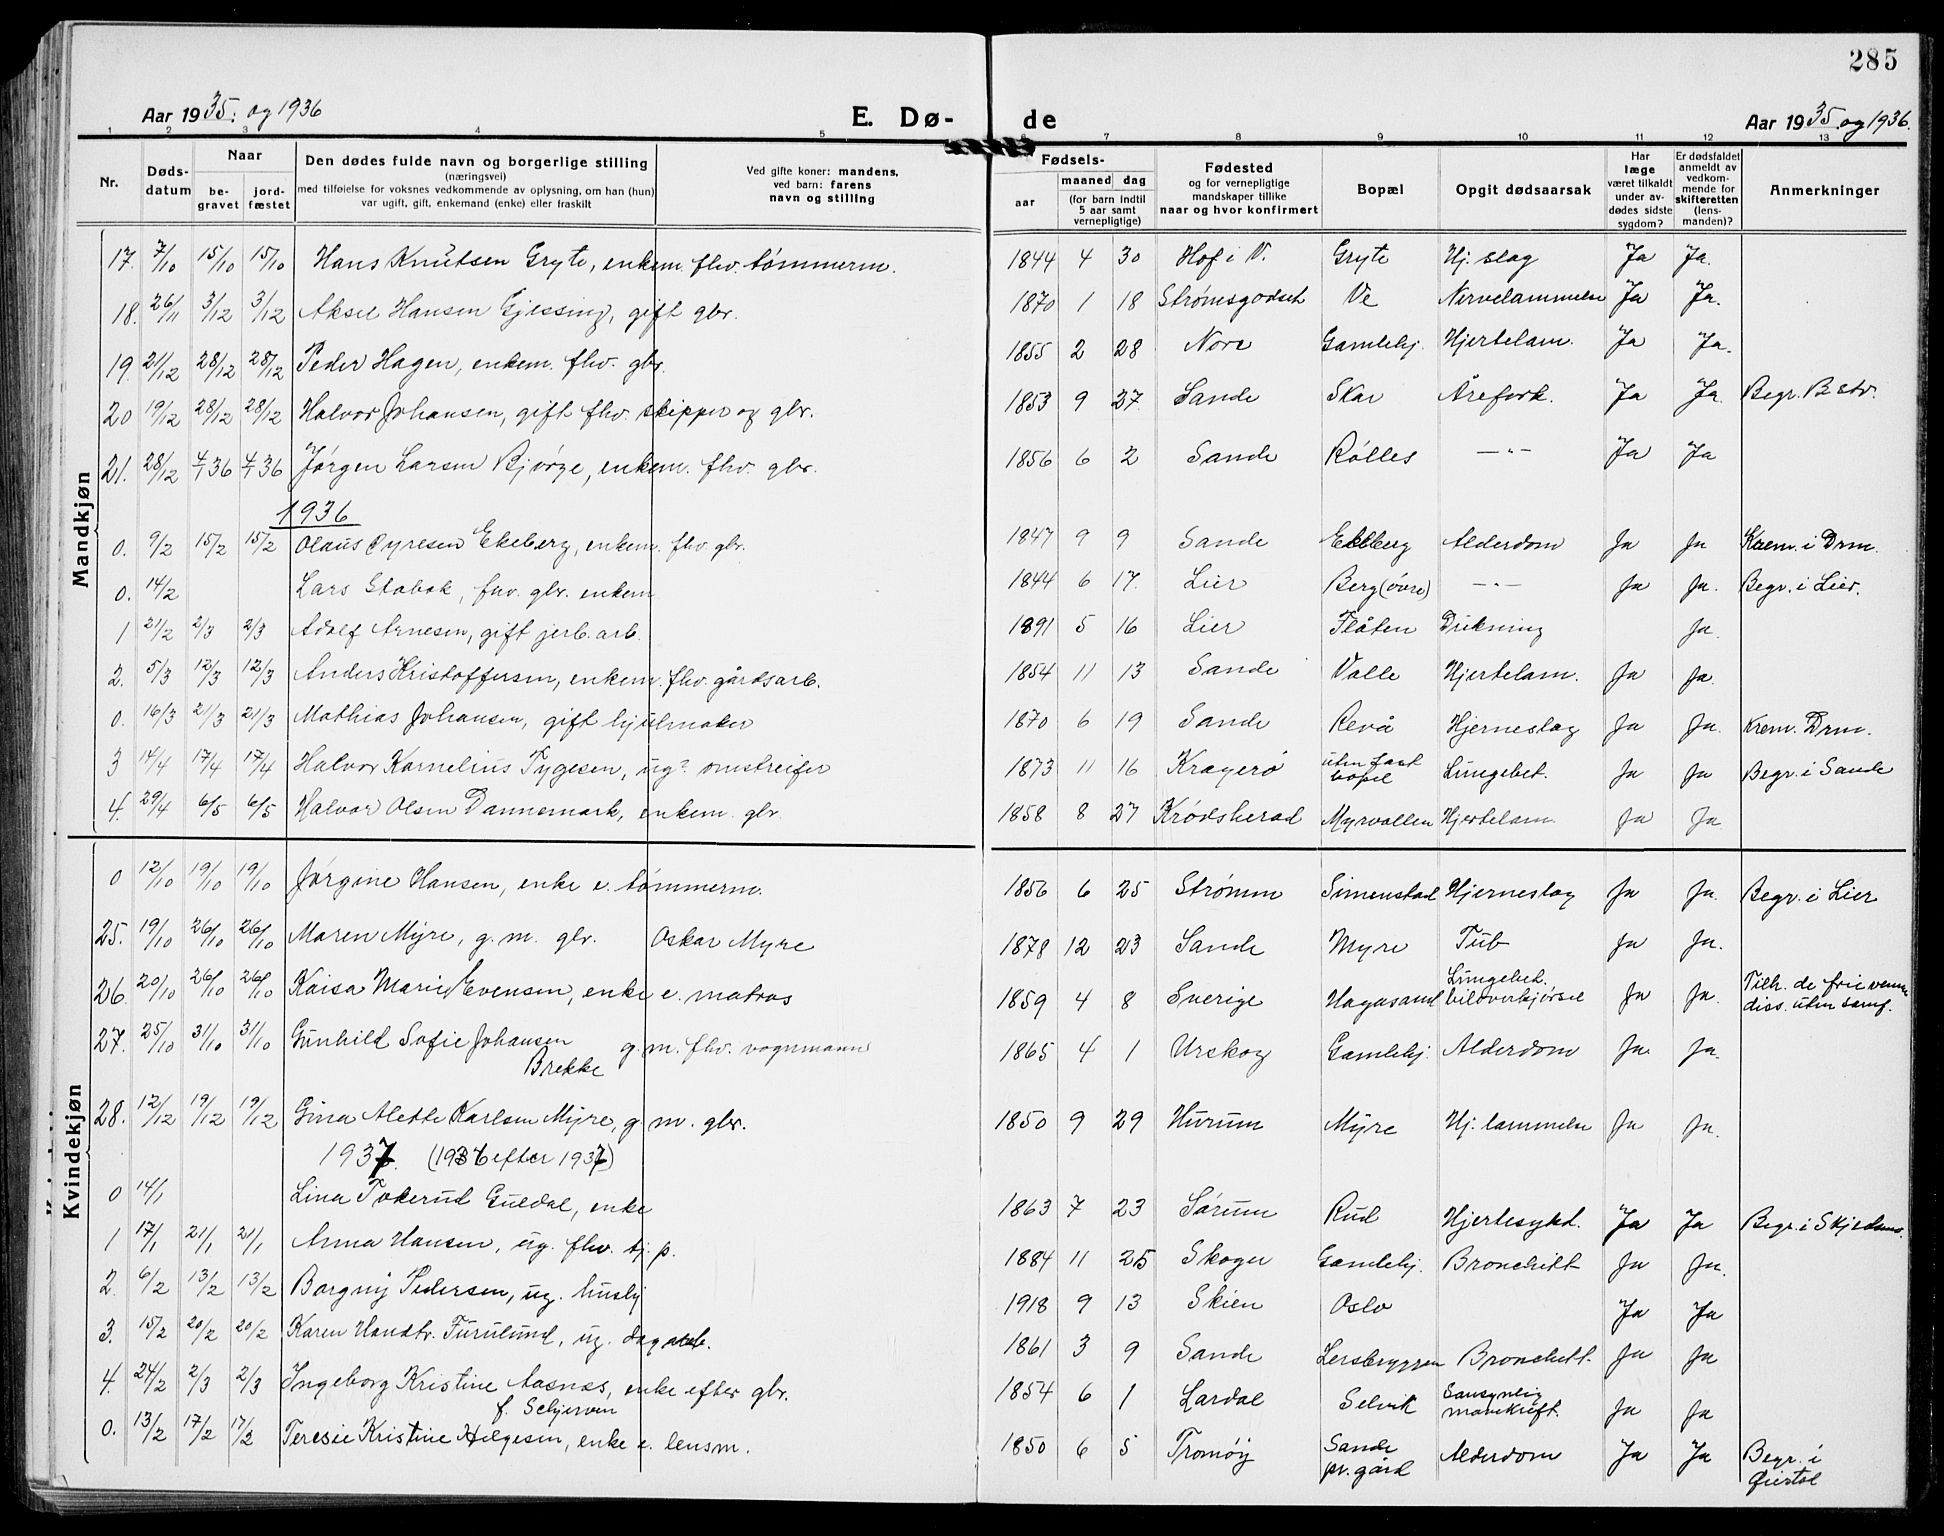 285
Aar 1935. og 1936
E. Dø-
de
Aar 1935. og 1936.
1 2 3 4 5 6 7 8 9 10 11 12 13
Nr. Døds-datum Naar be-gravet jord-fæstet
Den dødes fulde navn og borgerlige stilling
(næringsvei)
med tilføielse for voksnes vedkommende av oplysning, om han (hun)
var ugift, gift, enkemand (enke) eller fraskilt
Ved gifte koner: mandens,
ved barn: farens
navn og stilling
Fødsels-
aar maaned dag
(for barn indtil 5 aar samt vernepligtige)
Fødested
og for vernepligtige
mandskaper tillike
naar og hvor konfirmert
Bopæl
Opgit dødsaarsak
Har læge været tilkaldt under av-dødes sidste sygdom?
Er dødsfaldet anmeldt av vedkom-mende for skifteretten (lens-manden)?
Anmerkninger
Mandkjøn
17. 7/10 15/10 15/10 Hans Knutsen Gryte, enkem. fhv. tømmerm. 1844 4 30 Hof i V. Gryte Hj. slag Ja Ja.
18. 26/11 3/12 3/12 Aksel Hansen Gjessing, gift gbr. 1870 1 18 Strømsgodset Ve Nervelammelse Ja Ja.
19. 21/12 28/12 28/12 Peder Hagen, enkem. fhv. gbr. 1855 2 28 Nore Gamlehj. Hjertelam. Ja Ja.
20 19/12 28/12 28/12 Halvor Johansen, gift fhv. skipper og gbr. 1853 9 27. Sande Skar Årefork. Ja Ja. Begr. B str.
21. 28/12 4/1 36 4/1 36 Jørgen Larsen Bjørge, enkem. fhv. gbr. 1856 6 2 Sande Rølles —"— Ja Ja
1936
0. 9/2 15/2 15/2 Olaus Syresen Ekeberg, enkem. fhv. gbr. 1847 9 9 Sande Ekeberg Alderdom Ja Ja Krem. i Drm.
0. 14/2 Lars Stabæk, fhv. gbr. enkem 1844 6 17. Lier Berg (övre) —"— Ja Ja. Begr. i Lier.
1 21/2 2/3 2/3 Adolf Arnesen, gift jerb. arb. 1891 5 16 Lier Flåten Drukning Ja.
2. 5/3 12/3 12/3 Anders Kristoffersen, enkem. fhv. gårdsarb. 1854 11 13 Sande Valle Hjertelam. Ja Ja.
0. 16/3 21/3 21/3 Mathias Johansen, gift hjulmaker 1870 6 19 Sande Revå Hjerneslag Ja Ja. Krem. Drm.
3 14/4 17/4 17/4 Halvor Kornelius Tygesen, ug? omstreifer 1873 11 16 Kragerø uten fast bopel Lungebet. Ja Ja Begr. i Sande
4. 29/4 6/5 6/5 Halvor Olsen Dannemark, enkem. gbr. 1858 8 27 Krødsherad Myrvollen Hjertelam. Ja Ja
Kvindekjøn
0 12/10 19/10 19/10 Jørgine Hansen, enke e. tømmerm. 1856 6 25 Strømm Simenstad Hjerneslag Ja Ja. Begr. i Lier
25. 19/10 26/10 26/10 Maren Myre, g. m. gbr. Oskar Myre 1878 12 23 Sande Myre Tub Ja Ja.
26. 20/10 26/10 26/10 Kaisa Marie Evensen, enke e. matros 1859 4 8 Sverige Hagasand Lungebet. biloverkjørsel Ja Ja. Tilh. de frie venner diss. uten samf.
27. 25/10 31/10 31/10 Gunhild Sofie Johansen Brekke g. m. fhv. vognmann 1865 4 1 Urskog Gamlehj. Alderdom Ja. Ja.
28. 12/12 19/12 19/12 Gina Alette Karlsen Myre, g. m. gbr. 1850 9 29 Hurum Myre Hj. lammelse Ja Ja.
1937. (1936 efter 1937)
0 14/1 Lina Tokerud Guldal, enke 1863 7 23 Sørum Rud Hjertesykd. Ja Ja Begr. i Skjedsmo.
1 17/1 21/1 21/1 Anna Hansen, ug. fhv. tj. p. 1884 11 25 Skoger Gamlehj. Bronchitt Ja Ja.
2. 6/2 13/2 13/2 Borgny Pedersen, ug. hushj 1918 9 13 Skien Oslo Ja Ja
3. 15/2 20/2 20/2 Karen Handtr. Furulund, ug. dagarb. 1861 3 9 Sande Lersbryggen Bronchitt. Ja Ja
4. 24/2 2/3 2/3 Ingeborg Kristine Aasnes, enke efter gbr. f. Schjerven 1854 6 1 Lardal Selvik Sansynlig mavekreft. Ja Ja
0. 13/2 17/2 17/2 Teresie Kristine Helgesen, enke e. lensm. 1850 6 5 Tromøy Sande pr. gård Alderdom Ja Ja Begr. i Øiestad